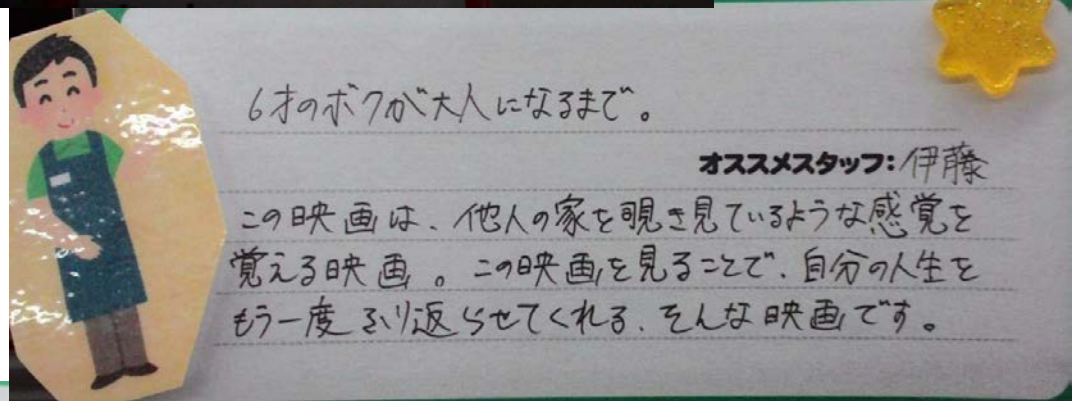 6才のボクが大人になるまで。
オススメスタッフ:伊藤
この映画は、他人の家を覗き見ているような感覚を
覚える映画。この映画を見ることで、自分の人生を
もう一度ふり返らせてくれる、そんな映画です。